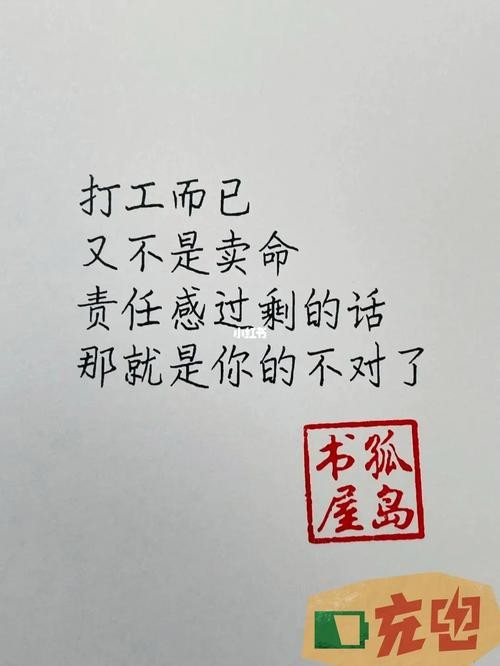 打工而已
又不是卖命
责任感过剩的话
小红书
那就是你的不对了
孤岛
书屋
充电